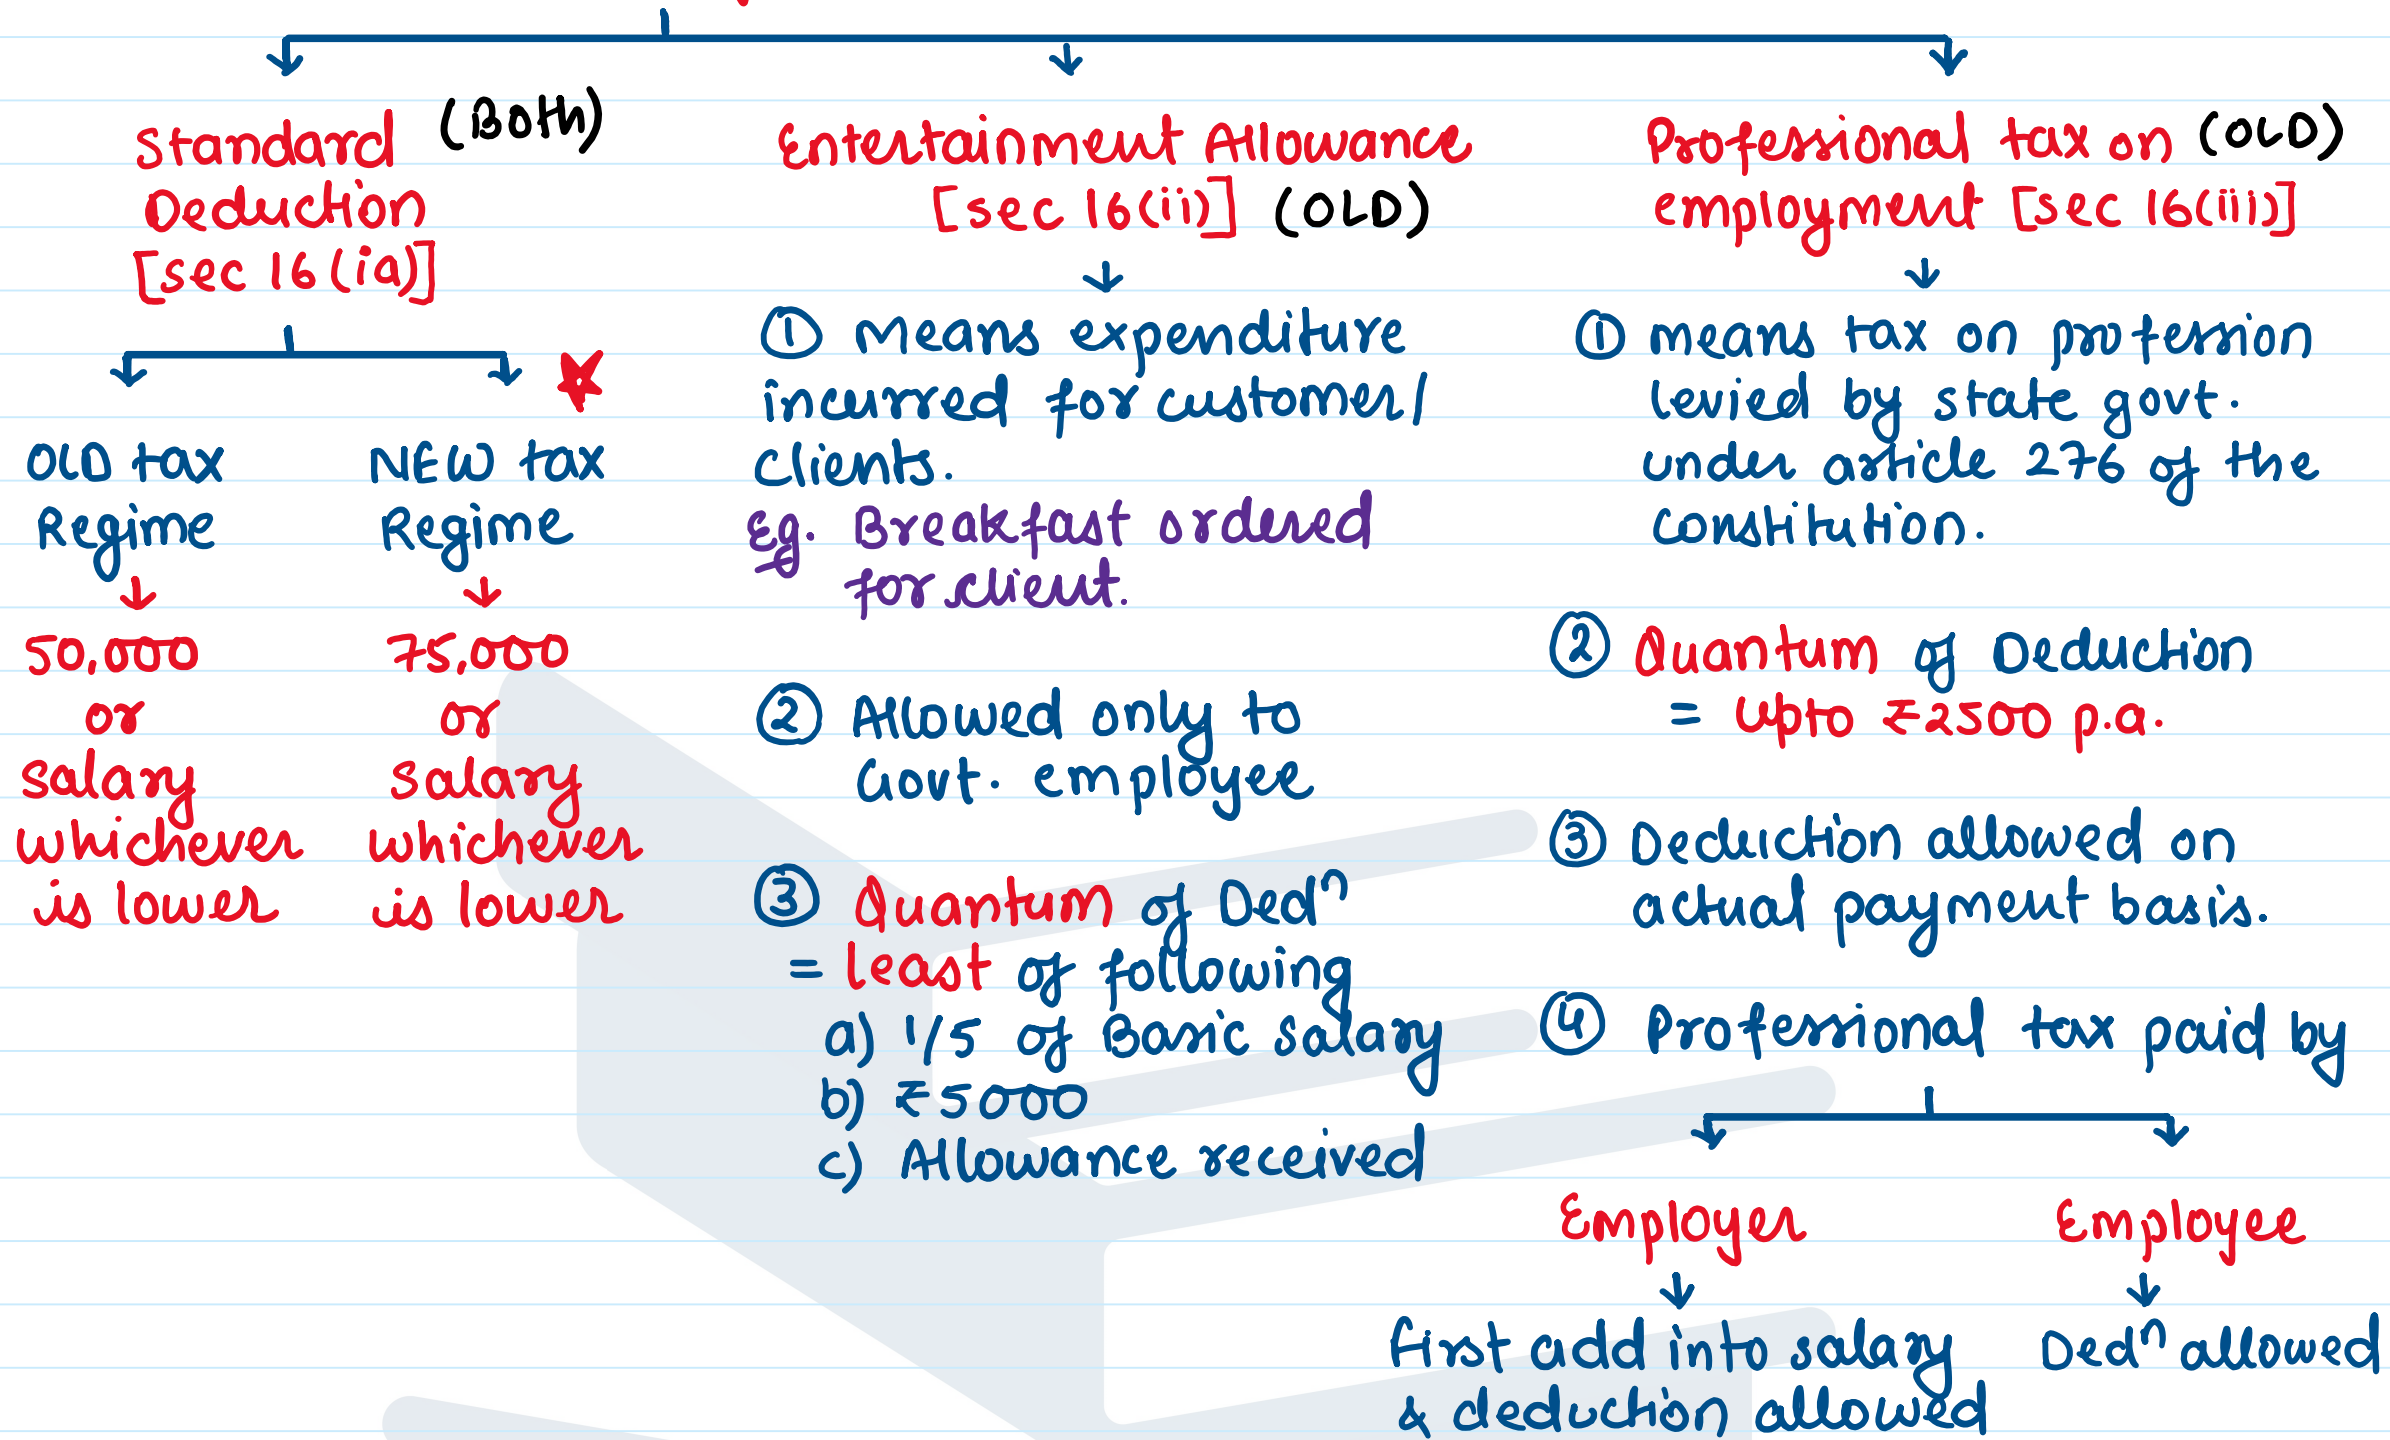 Standard (Both)
Deduction
[sec 16(ia)]
OLD tax
Regime
50,000
or
salary
whichever
is lower
NEW tax
Regime
75,000
or
salary
whichever
is lower
Entertainment Allowance
[sec 16(ii)] (OLD)
① Means expenditure
incurred for customer/
clients.
Eg. Breakfast ordered
for client.
② Allowed only to
Govt. employee
③ Quantum of Dedⁿ
= least of following
a) 1/5 of Basic salary
b) ₹5000
c) Allowance received
Professional tax on (OLD)
employment [sec 16(iii)]
① means tax on profession
levied by state govt.
under article 276 of the
constitution.
② Quantum of Deduction
= upto ₹2500 p.a.
③ Deduction allowed on
actual payment basis.
④ Professional tax paid by
Employer
First add into salary
& deduction allowed
Employee
Dedⁿ allowed